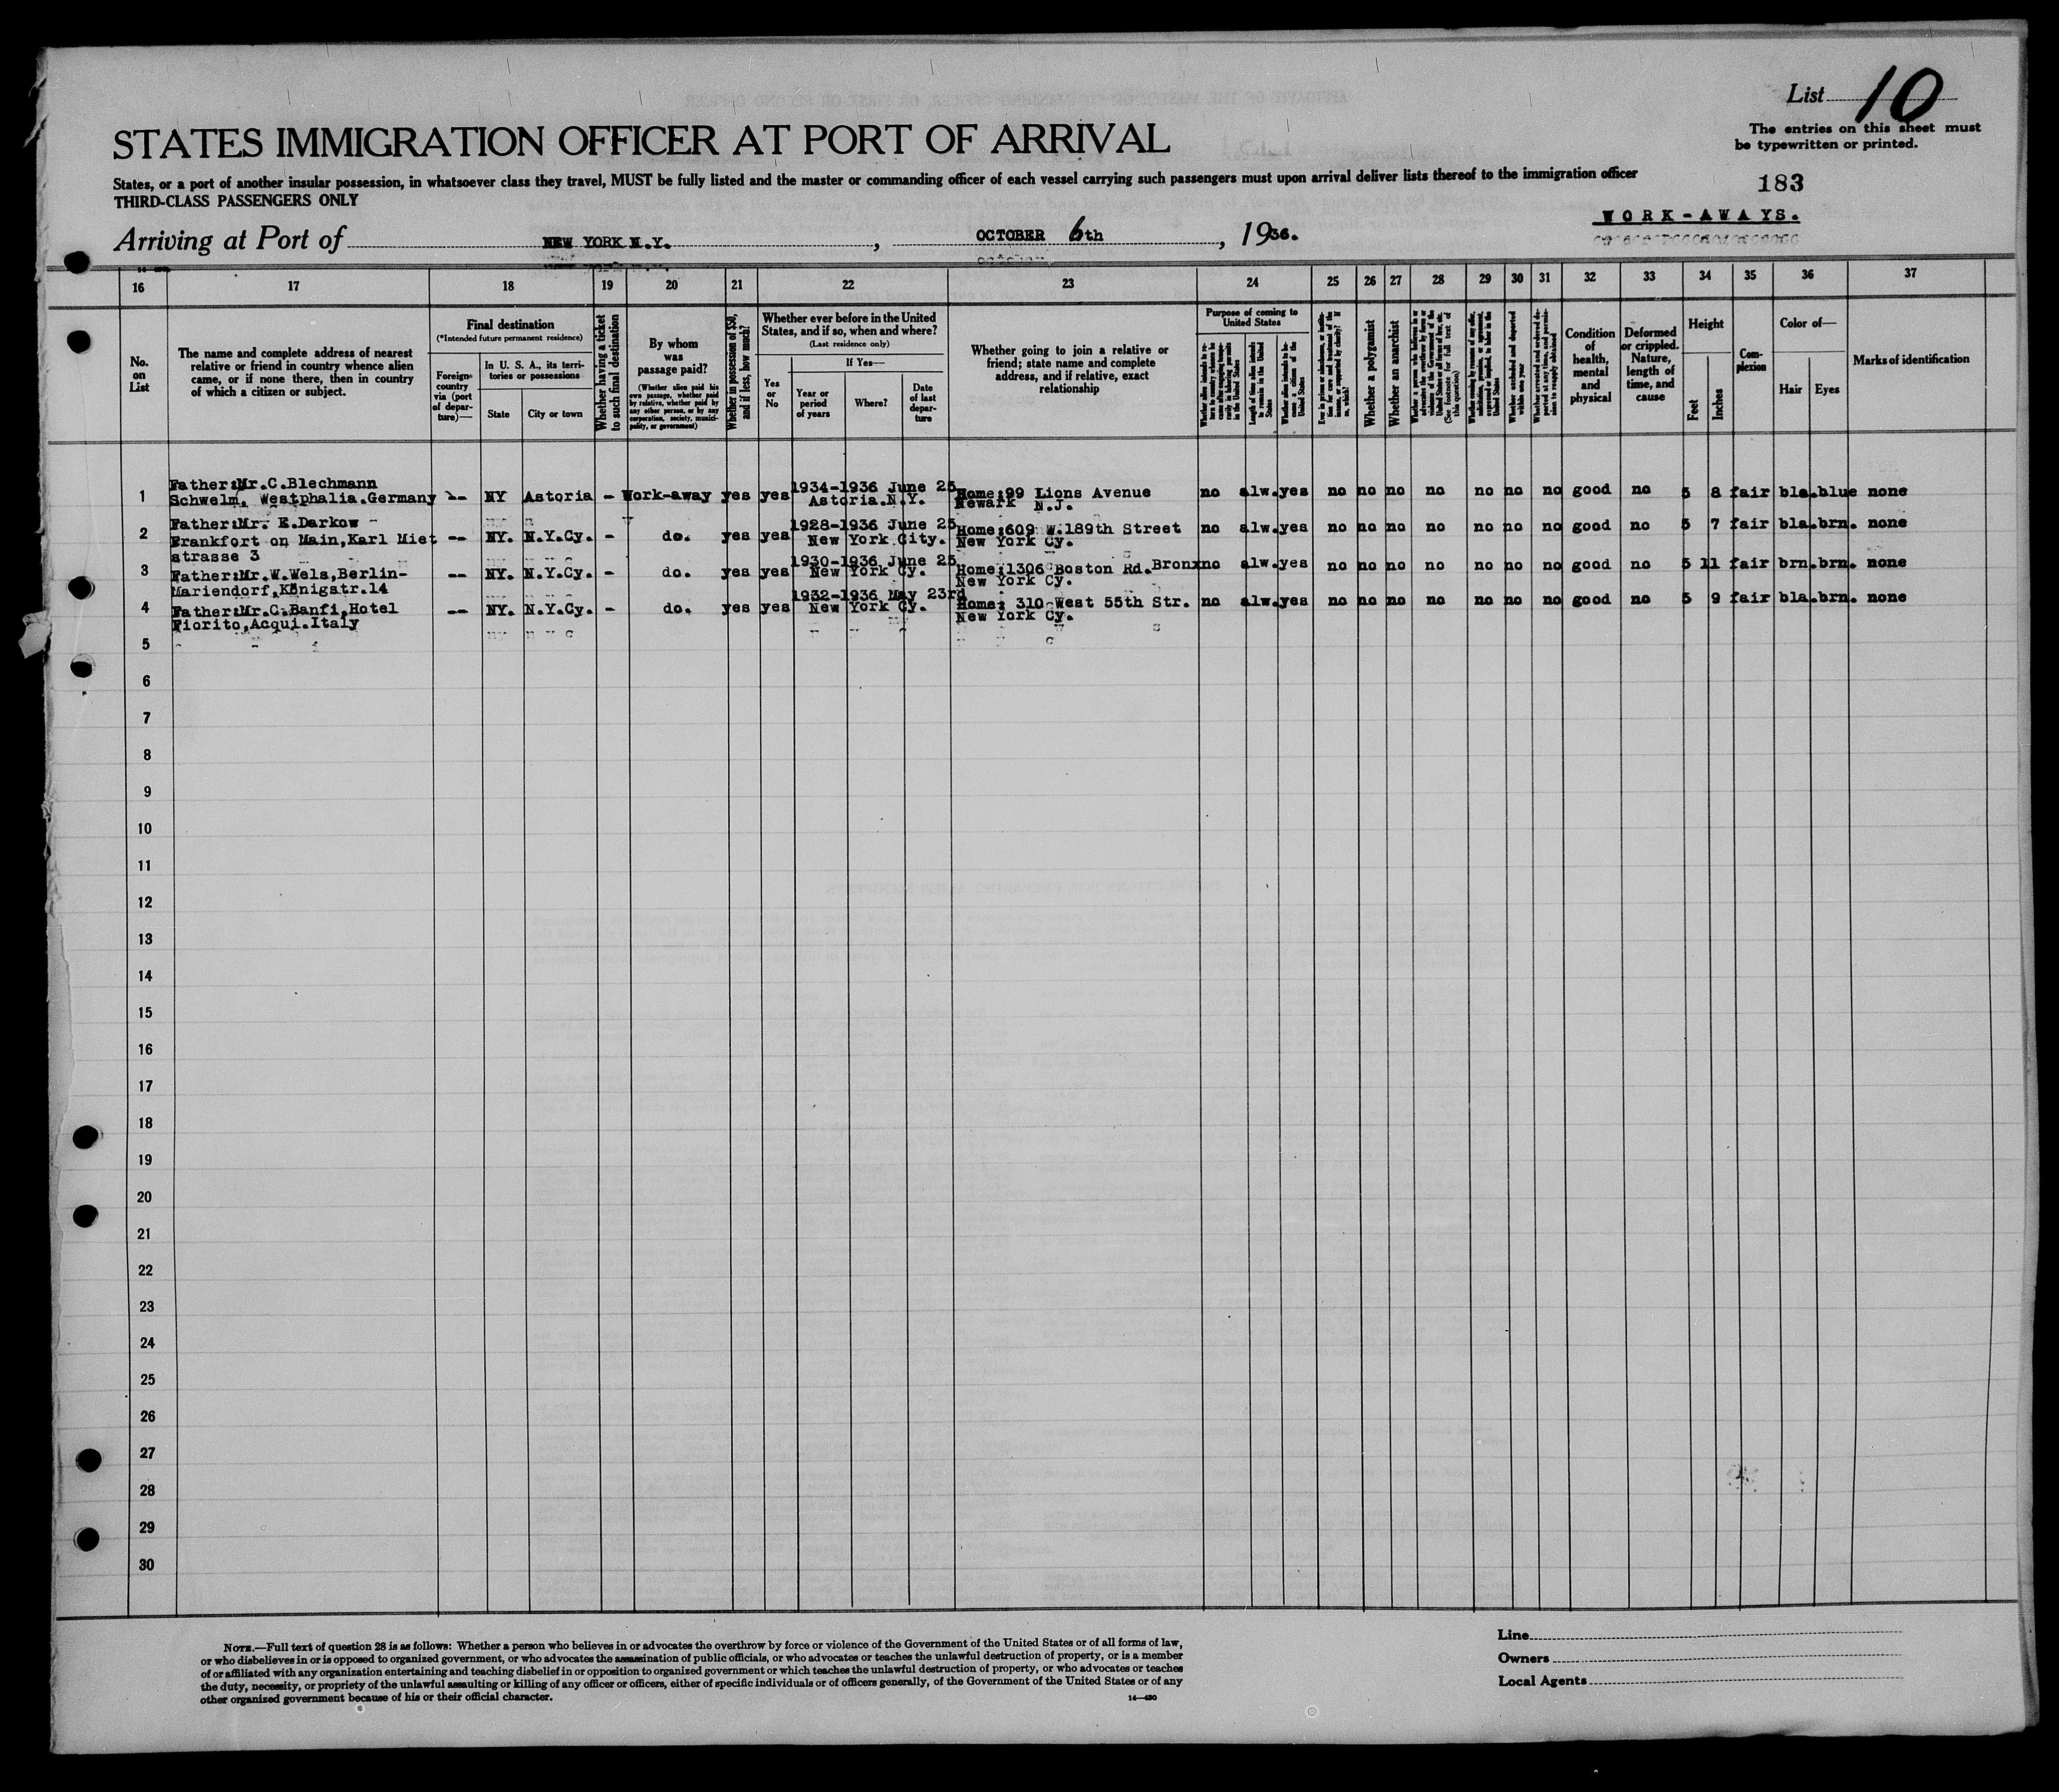 List 10
STATES IMMIGRATION OFFICER AT PORT OF ARRIVAL
The entries on this sheet must
be typewritten or printed.
States, or a port of another insular possession, in whatsoever class they travel, MUST be fully listed and the master or commanding officer of each vessel carrying such passengers must upon arrival deliver lists thereof to the immigration officer
THIRD-CLASS PASSENGERS ONLY
183
WORK-AWAYS.
Arriving at Port of NEW YORK N.Y., OCTOBER 6th, 1936.
16 17 18 19 20 21 22 23 24 25 26 27 28 29 30 31 32 33 34 35 36 37
No. on List
The name and complete address of nearest
relative or friend in country whence alien
came, or if none there, then in country
of which a citizen or subject.
Final destination
(*Intended future permanent residence)
Foreign country via (port of departure)—
In U. S. A., its territories or possessions
State
City or town
Whether having a ticket to such final destination
By whom was passage paid?
(Whether alien paid his own passage, whether paid by relative, whether paid by any other person, or by any corporation, society, municipality, or government)
Whether in possession of $50, and if less, how much?
Whether ever before in the United
States, and if so, when and where?
(Last residence only)
Yes or No
If Yes—
Year or period of years
Where?
Date of last departure
Whether going to join a relative or
friend; state name and complete
address, and if relative, exact
relationship
Purpose of coming to United States
Length of time alien intends to remain in the United States
Whether alien intends to become a citizen of the United States
Whether a polygamist
Whether an anarchist
Condition of health, mental and physical
Deformed or crippled. Nature, length of time, and cause
Height
Feet
Inches
Complexion
Color of—
Hair
Eyes
Marks of identification
1 Father:Mr.C.Blechmann
Schwelm, Westphalia.Germany -- NY Astoria - Work-away yes yes 1934-1936 June 25 Astoria.N.Y. Home:99 Lions Avenue Newark N.J. no alw. yes no no no no no no no good no 5 8 fair bla. blue none
2 Father:Mr. E.Darkow
Frankfort on Main,Karl Miet
strasse 3 -- NY. N.Y.Cy. - do. yes yes 1928-1936 June 25 New York City. Home:609 W.189th Street New York Cy. no alw. yes no no no no no no no good no 5 7 fair bla. brn. none
3 Father:Mr.W.Wels,Berlin-
Mariendorf,Königstr.14 -- NY. N.Y.Cy. - do. yes yes 1930-1936 June 25 New York Cy. Home:1306 Boston Rd.Bronx New York Cy. no alw. yes no no no no no no no good no 5 11 fair brn. brn. none
4 Father:Mr.C.Banfi,Hotel
Fiorito,Acqui.Italy -- NY. N.Y.Cy. - do. yes yes 1932-1936 May 23rd New York Cy. Home: 310 West 55th Str. New York Cy. no alw. yes no no no no no no no good no 5 9 fair bla. brn. none
5
6
7
8
9
10
11
12
13
14
15
16
17
18
19
20
21
22
23
24
25
26
27
28
29
30
NOTE.—Full text of question 28 is as follows: Whether a person who believes in or advocates the overthrow by force or violence of the Government of the United States or of all forms of law,
or who disbelieves in or is opposed to organized government, or who advocates the assassination of public officials, or who advocates or teaches the unlawful destruction of property, or is a member
of or affiliated with any organization entertaining and teaching disbelief in or opposition to organized government or which teaches the unlawful destruction of property, or who advocates or teaches
the duty, necessity, or propriety of the unlawful assaulting or killing of any officer or officers, either of specific individuals or of officers generally, of the Government of the United States or of any
other organized government because of his or their official character.
14—430
Line
Owners
Local Agents